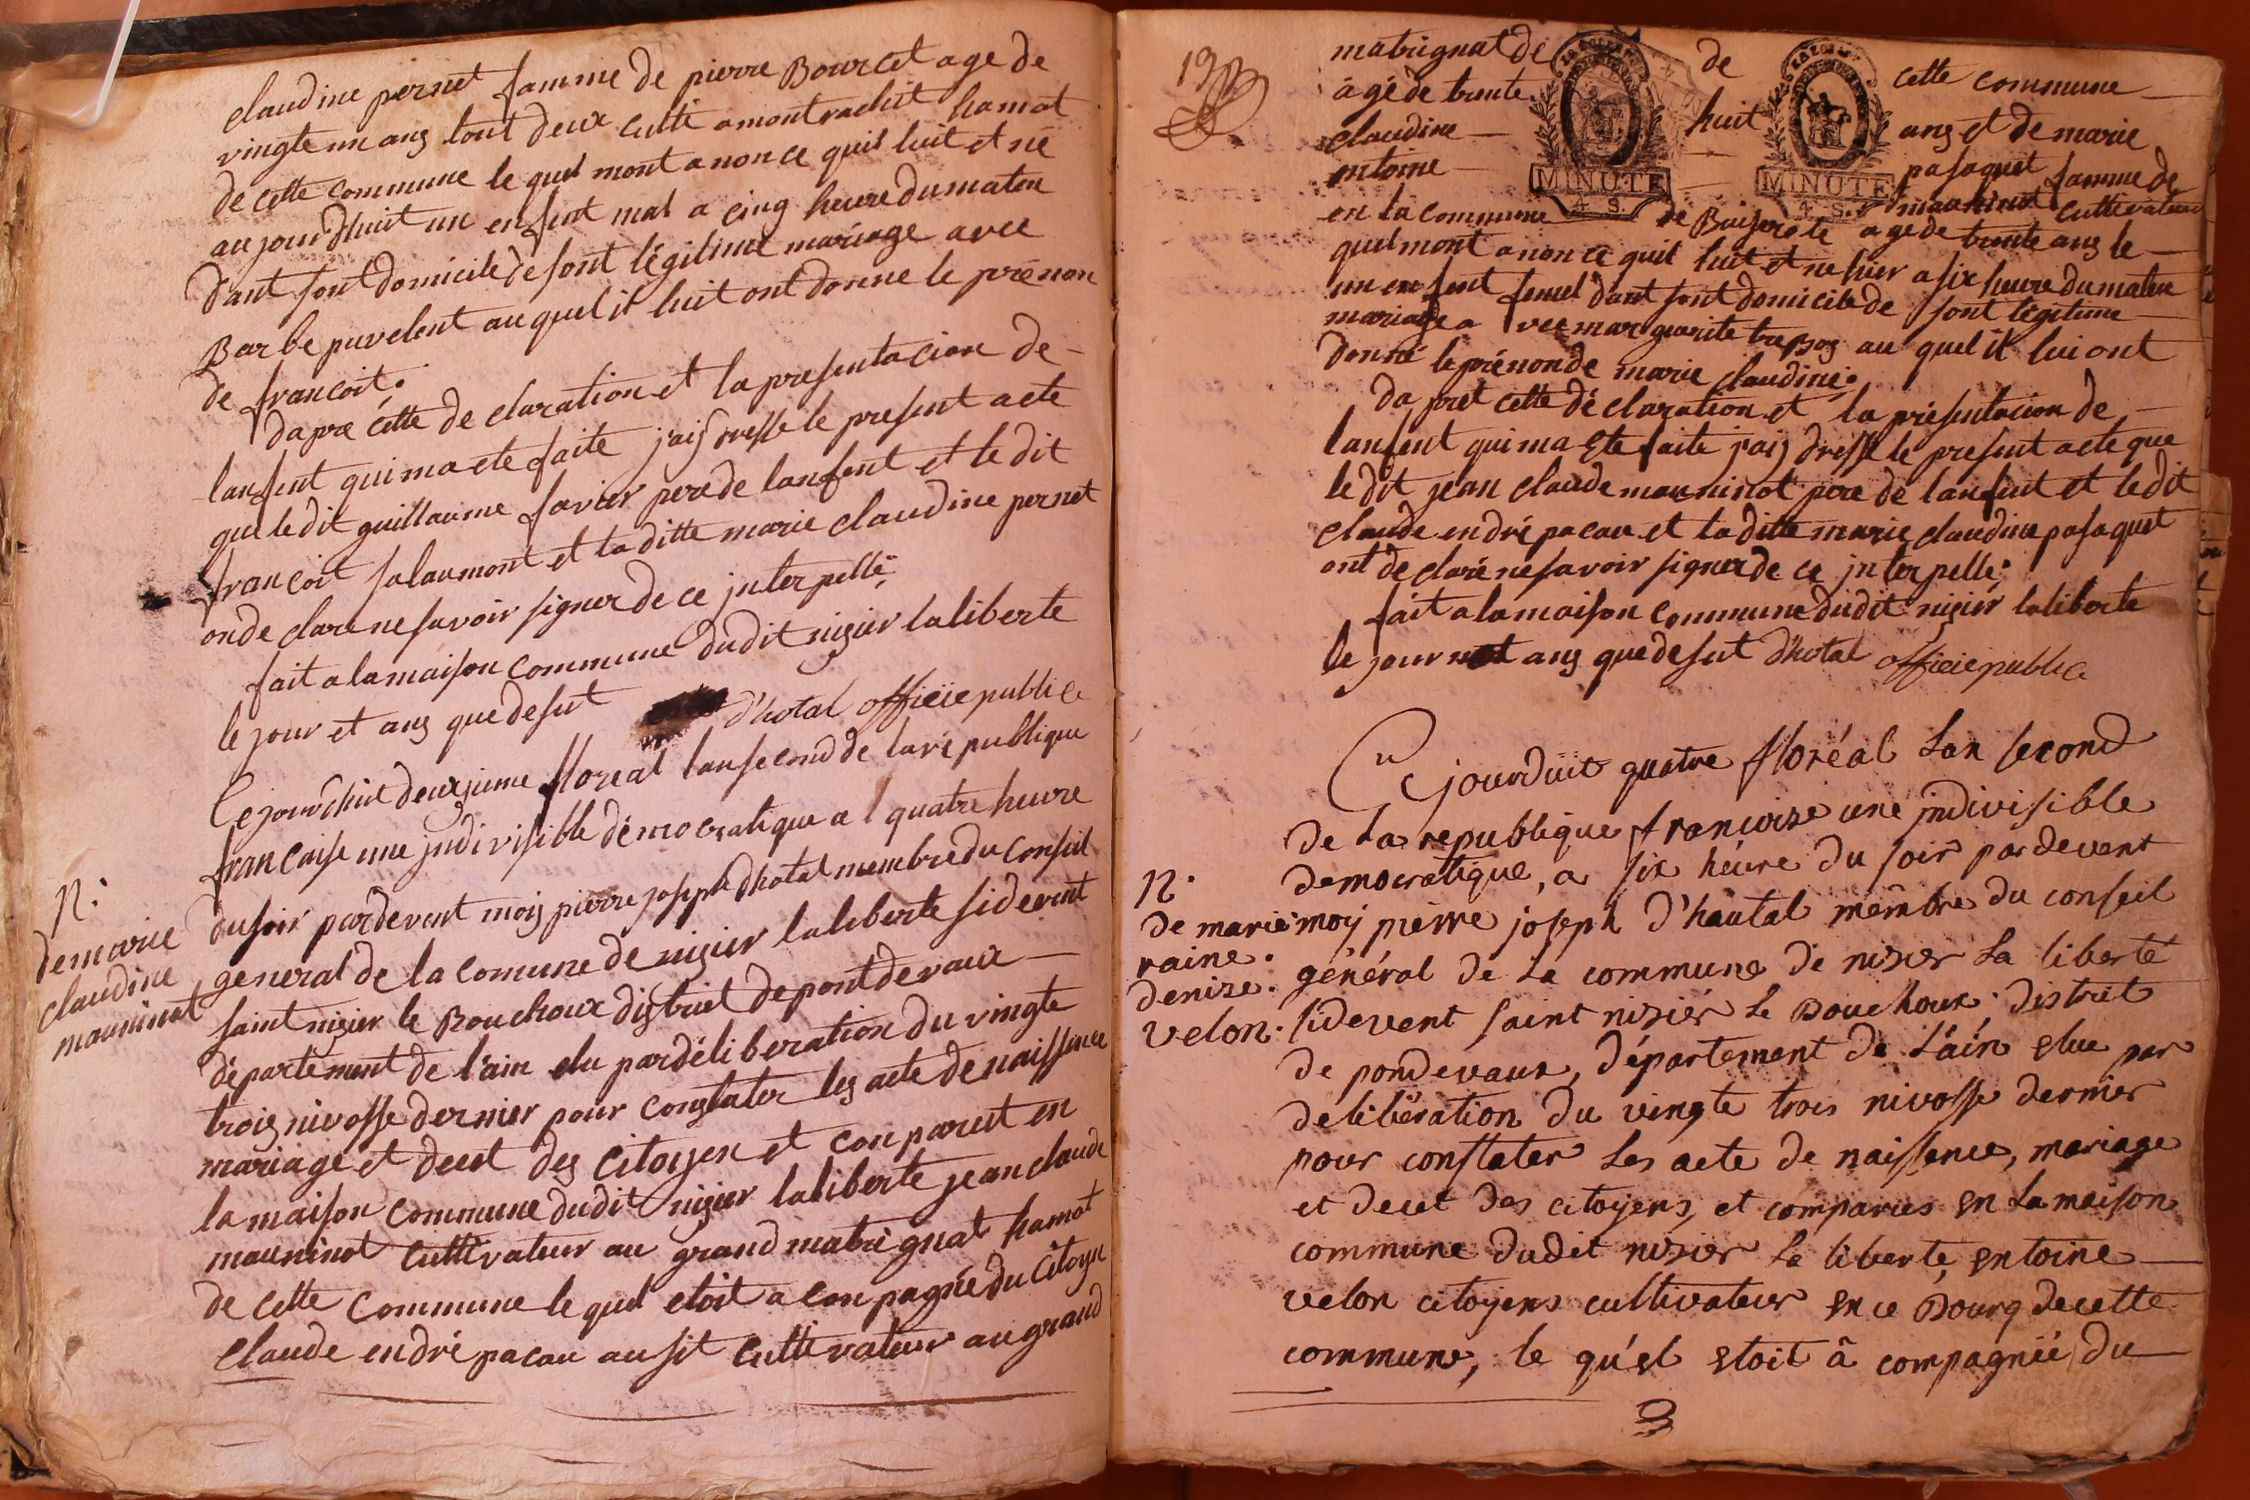 claudine pernet famme de pierre Bourcet age de
vingte un ans tout deux culti a montrachit hamot
de cette commune le quel mont anonce quis luit et né
aujourdhuit un enfent mal a cinq heure du maten
dant sont domicile de sont légitime mariage avec
Barbe puvelent au quel il luit ont donne le prénon
de francoit.
dapre cette de claration et la presentacion de
lanfent qui ma ete faite j'aij dresse le present acte
que le dit guillaume favier pere de lanfent et le dit
francoit salaumont et la ditte marie claudine pernet
on de clare ne savoir signer de ce jnterpellé
fait a la maison commune du dit nizier la liberte
le jour et ans que desut d'hotal officie public
Ce jourdhuit deuxjeme floreal lan second de la république
francaise une jndivisible démocratique a quatre heure
du soir pardevent mois pierre joseph dhotal membre du conseil
general de la comune de nizier la liberte sidevent
saint nizier le Bouchoux district de pontdevaux
département de l'ain elu par déliberation du vingte
trois nivosse dernier pour constater les acte de naissence
mariage et decet des citoyen et con parest en
la maison commune du dit nizier la liberte jean claude
mauninot cultivateur au grand matrignat hamot
de cette commune le quel etoit a conpagnée du citoyen
claude endré pacau ausit cultivateur au grand
n.
de marie
claudine
mauninot
19
matrignat de de cette commune
âgé de trente huit ans et de marie
claudine pasaquet famme de
entoine mauninot cultivateur
en la commune de Buiserole age de trente ans le
quel mont anonce quis luit et ne hier a six heure du maten
un enfent femel dant sont domicile de sont légitime
mariage avec marguarite trebos au quel il lui ont
donné le prénon de marie claudine.
da pret cette déclaration et la présentacion de
lanfent qui ma ete faite j'aij dresse le present acte que
le dit jean claude mauninot pere de lanfent et le dit
claude endré pacau et la ditte marie claudine pasaquet
ont de claré ne savoir signer de ce jnterpellé;
fait a la maison commune du dit nizier la liberte
le jour et ans que desut d'hotal officie public
Ce jourduit quatre floréal Lan second
de La republique francoise une jndivisible
democratique, a six heure du soir pardevent
moy pierre joseph d'hautal membre du conseil
général de La commune de nizier La liberté
sidevent saint nizier Le Bouchoux, district
de pondevaux, département de L'ain elue par
delibération du vingte trois nivosse dernier
pour constater Les acte de naissence, mariage
et decet des citoyens, et comparues en La maison
commune dudit nizier La liberté, entoine
velon citoyens cultivateur en ce Bourg de cette
commune, le qu'el etoit â compagnié du
n.
de marie
raine.
denize.
velon.
MINUTE
4. S.
MINUTE
4. S.